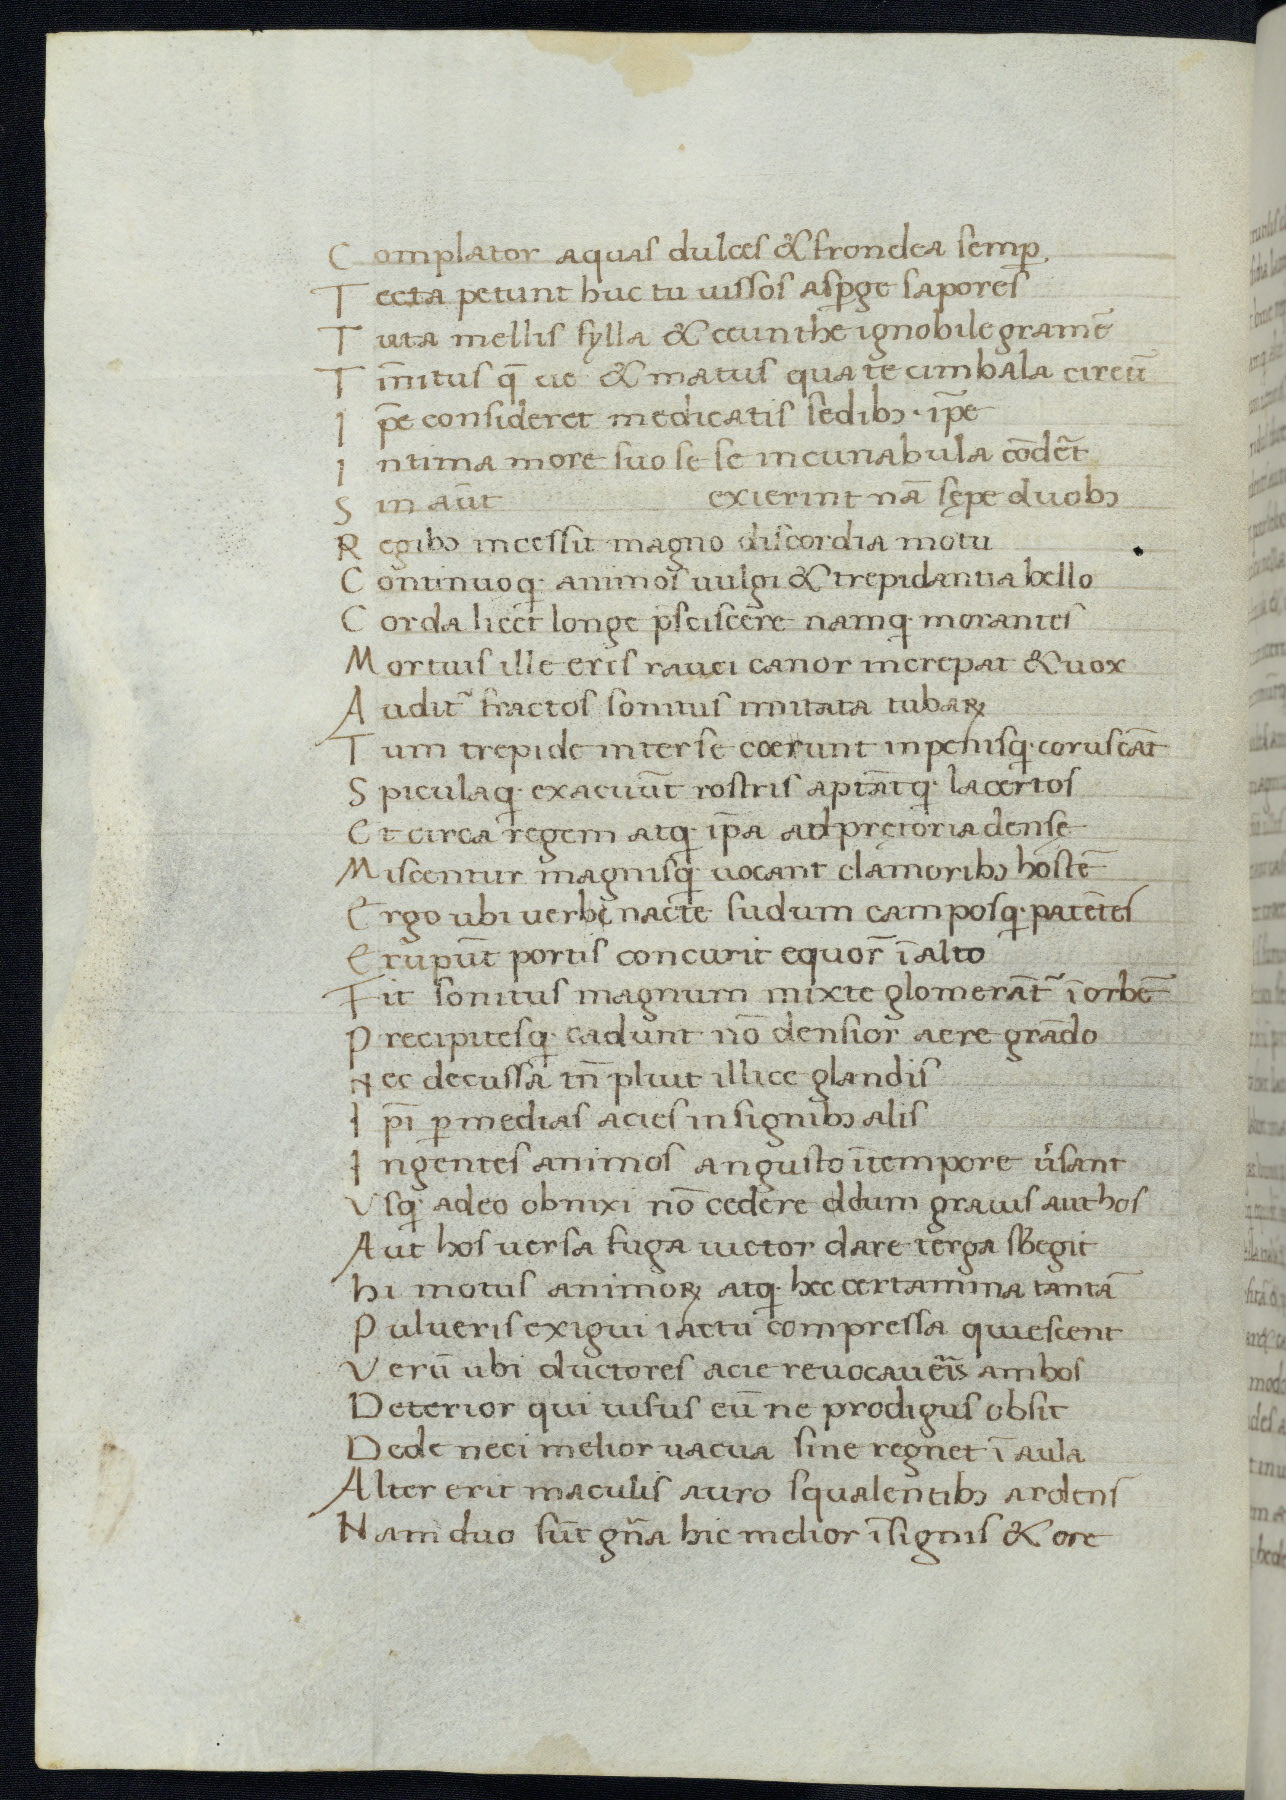 Complator aquas dulces & frondea semp̱.
Tecta petunt huc tu uissos asp̱ge sapores
Trita mellis sylla & ceunthe ignobile gramē
Tīnitus q̄ cie & matris quate cimbala circū
Ip̄e consideret medicatis sedibꝫ · ip̄e
Intima more suo se se in cunabula cōdēt
Sin aūt exierint nā sępe duobꝫ
Regibꝫ incessit magno discordia motu
Continuoq· animos uulgi & trepidantia bello
Corda licet longe p̄sciscere namq· morantes
Mortuis ille eris rauci canor increpat & uox
Audit᷑ fractos sonitus imitata tubaꝝ
Tum trepide inter se coerunt inpenisq· coruscāt
Spiculaq· exacuūt rostris aptātq· lacertos
Et circa regem atq· ip̄a ad pręcoria densę
Miscentur magnisq· uocant clamoribꝫ hostē
Ergo ubi uerbę nacte sudum camposq· patētes
Erūpūt portis concurit equor̄ ī alto
Fit sonitus magnum mixte glomerāt᷑ ī orbē
Precipitesq· cadunt nō densior aere grādo
Nec decussā tn̄ pluit illice glandis
Ip̄i ꝑ medias acies insignibꝫ alis
Ingentes animos angusto ī tempore ůsant
Vsq· adeo obnixi nō cedere ddum grauis aut hos
Aut hos uersa fuga uictor dare terga sᵬegit
hi motus animoꝝ atq· hec certamina tantā
Pulueris exigui iactu compressa quiescent
Verū ubi ductores acie reuocaueīs ambos
Deterior qui uisus eū ne prodigus obsit
Dede neci melior uacua sine regnet ī aula
Alter erit maculis auro squalentibꝫ ardens
Nam duo sūt gn̄a hic melior īsignis & ore